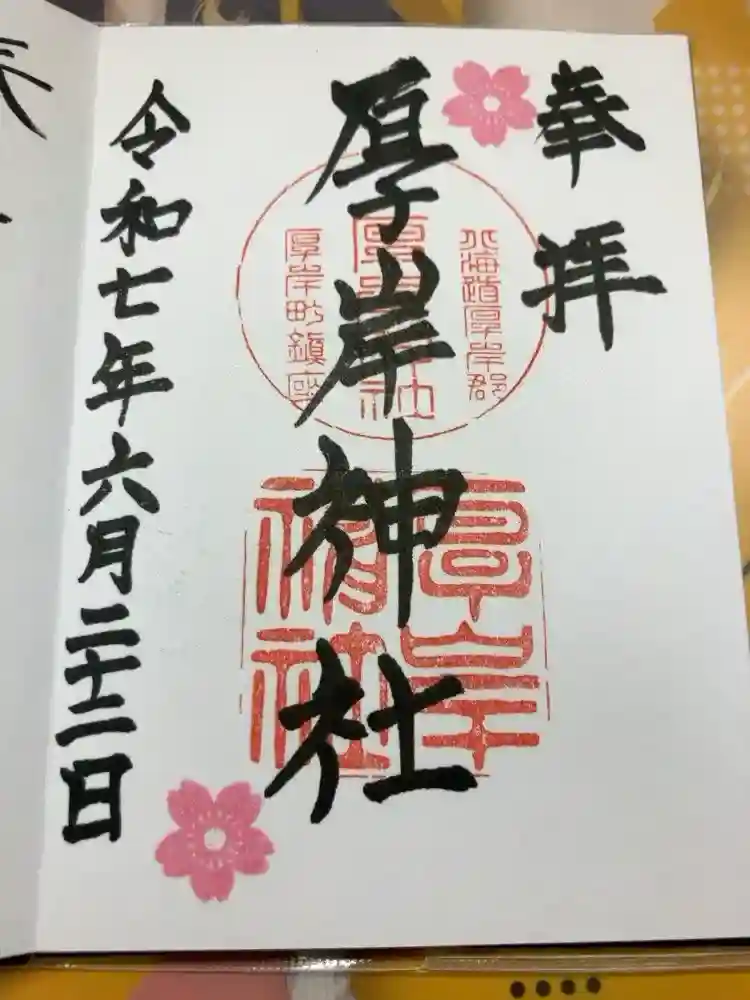 奉拝
北海道厚岸郡
厚岸神社
厚岸町鎮座
厚岸神社
厚岸神社
令和七年六月二十二日